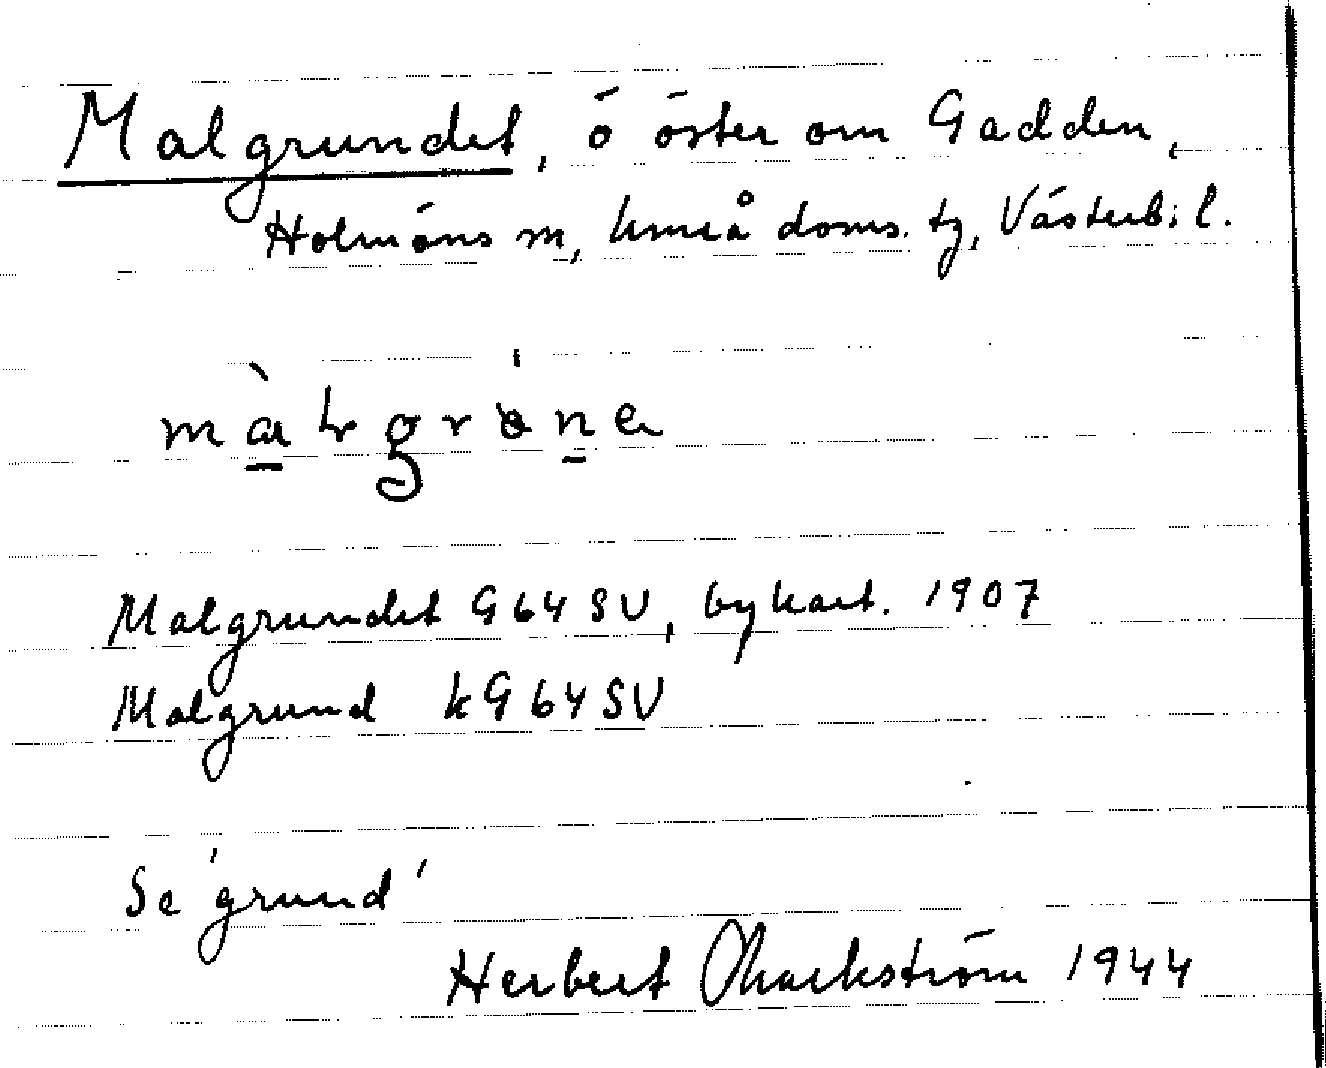 Malgrundet, ö öster om Gadden,
Holmöns sn, Umeå doms. tg, Västerb:s l.
Malgrundet G64SV, bykart. 1907
Malgrund kG64SV
Se 'grund'
Herbert Markström 1944